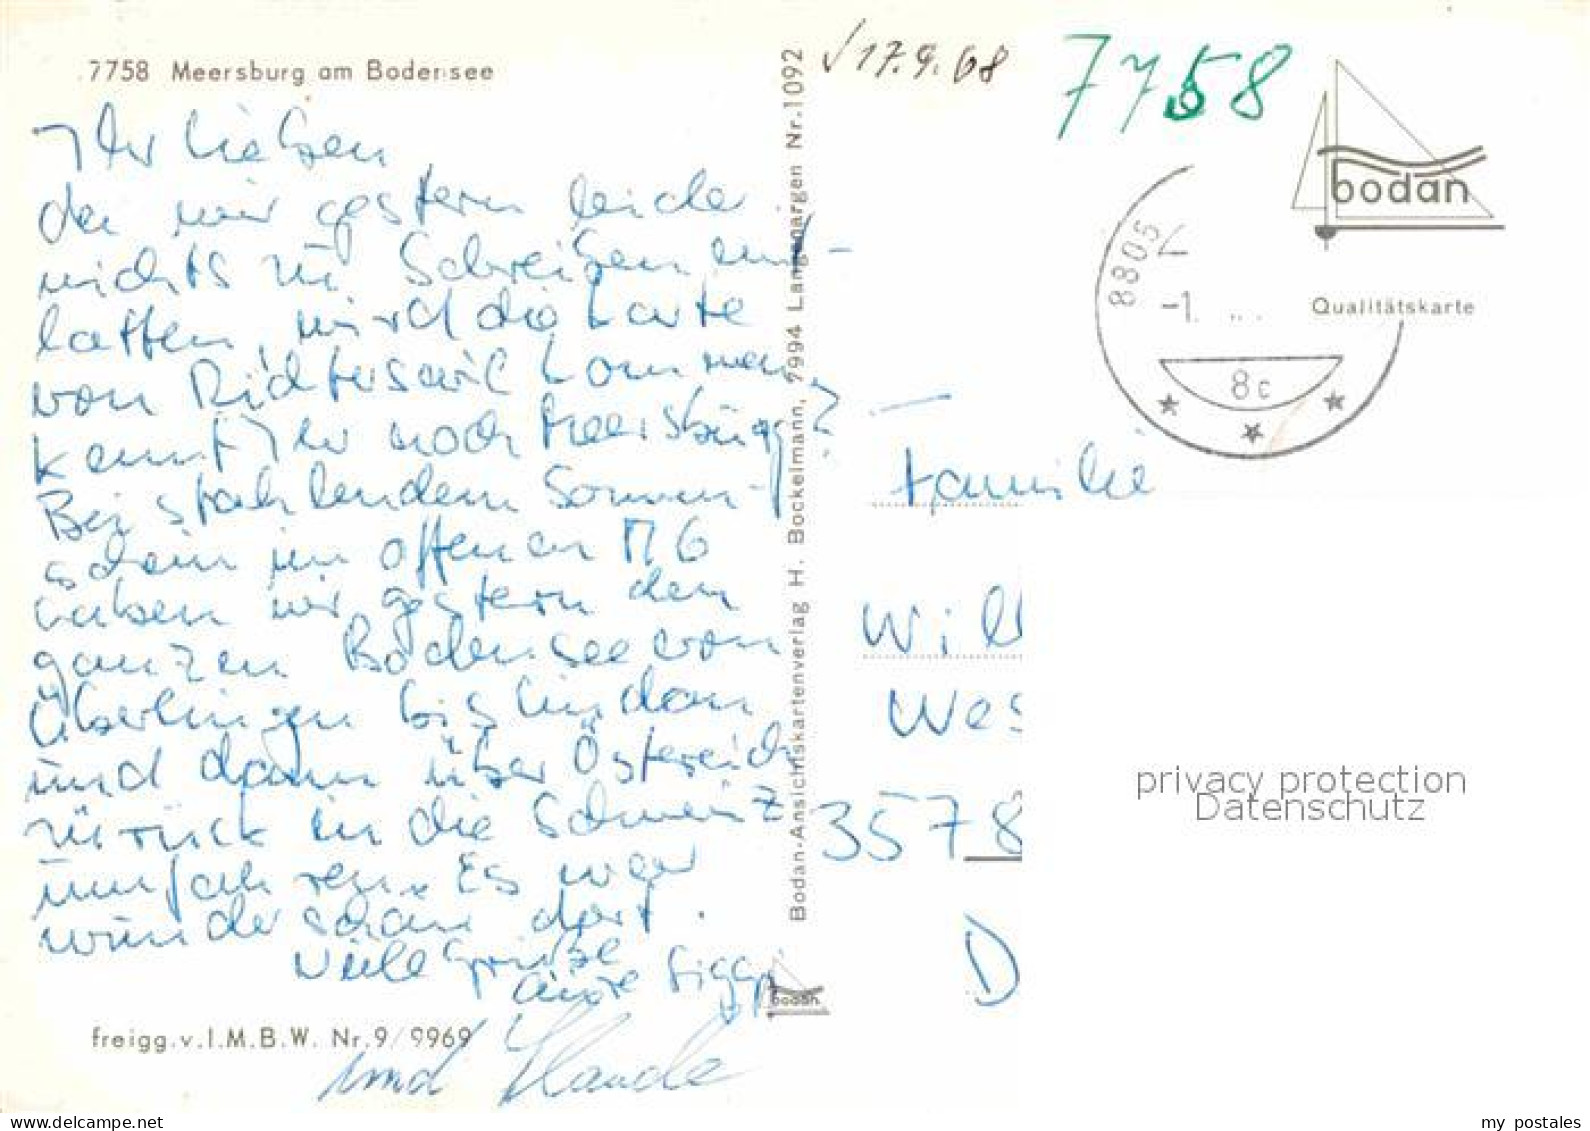 7758 Meersburg am Bodensee
Ihr Lieben
da wir gestern leider
nichts zu Schreiben mit-
hatten, wird die Karte
von Richterswil kommen,
kennt Ihr noch Meersburg?
Bei strahlendem Sonnen-
schein im offenen MG
haben wir gestern den
ganzen Bodensee von
Überlingen bis Lindau
und dann über Östereich
zurück in die Schweiz
umfahren. Es war
wunderschön dort.
Viele Grüße
Eure Siggi
und
freigg.v.I.M.B.W. Nr.9/9969
Bodan-Ansichtskartenverlag H. Bockelmann, 7994 Langenargen Nr.1092
bodan
√17.9.68
7758
bodan
Qualitätskarte
8805
-1.
8c
Familie
Will
Wes
3578
D
privacy protection
Datenschutz
www.delcampe.net
my_postales